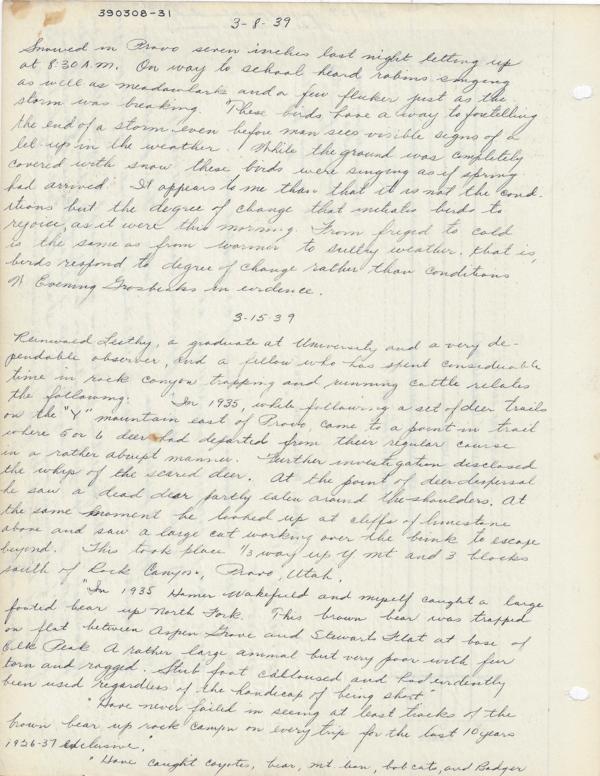 390308-31
3-8-39
Snowed in Provo seven inches last night letting up
at 8:30 A.M. On way to school heard robins singing
as well as meadowlarks and a few flicker just as the
storm was breaking. These birds have a way to foretelling
the end of a storm even before man sees visible signs of a
let-up in the weather. While the ground was completely
covered with snow these birds were singing as if spring
had arrived. It appears to me than that it is not the cond-
itions but the degree of change that initiates birds to
rejoice, as it were this morning. From frigid to cold
is the same as from warmer to sultry weather. that is,
birds respond to degree of change rather than conditions
Evening Grosbeaks in evidence.
3-15-39
Reinwald a graduate at University and a very de-
pendable observer, and a fellow who has spent considerable
time in rock canyon trapping and running cattle relates
the following: In 1935, while following a set of deer trails
on the "Y" mountain east of Provo, came to a point in trail
where 5 or 6 deer had departed from their regular course
in a rather abrupt manner. Further investigation disclosed
the whys of the scared deer. At the point of deer dispersal
he saw a dead dear partly eaten around the shoulders. At
the same moment he looked up at cliffs of limestone
above and saw a large cat working over the to escape
beyond. This took place 1/3 way up Y mt and 3 blocks
south of Rock Canyon, Provo, Utah.
"In 1935 Homer Wakefield and myself caught a large
footed bear up North Fork. This brown bear was trapped
on flat between Aspen Grove and Stewarts Flat at base of
Elk Peak A rather large animal but very poor with fur
torn and ragged. Stub foot calloused and had evidently
been used regardless of the handicap of being short"
"Have never failed in seeing at least tracks of the
brown bear up rock canyon on every trip for the last 10 years
1926-37 exclusive."
"Have caught coyotes, bear, mt. lion, bob cats, and Badger